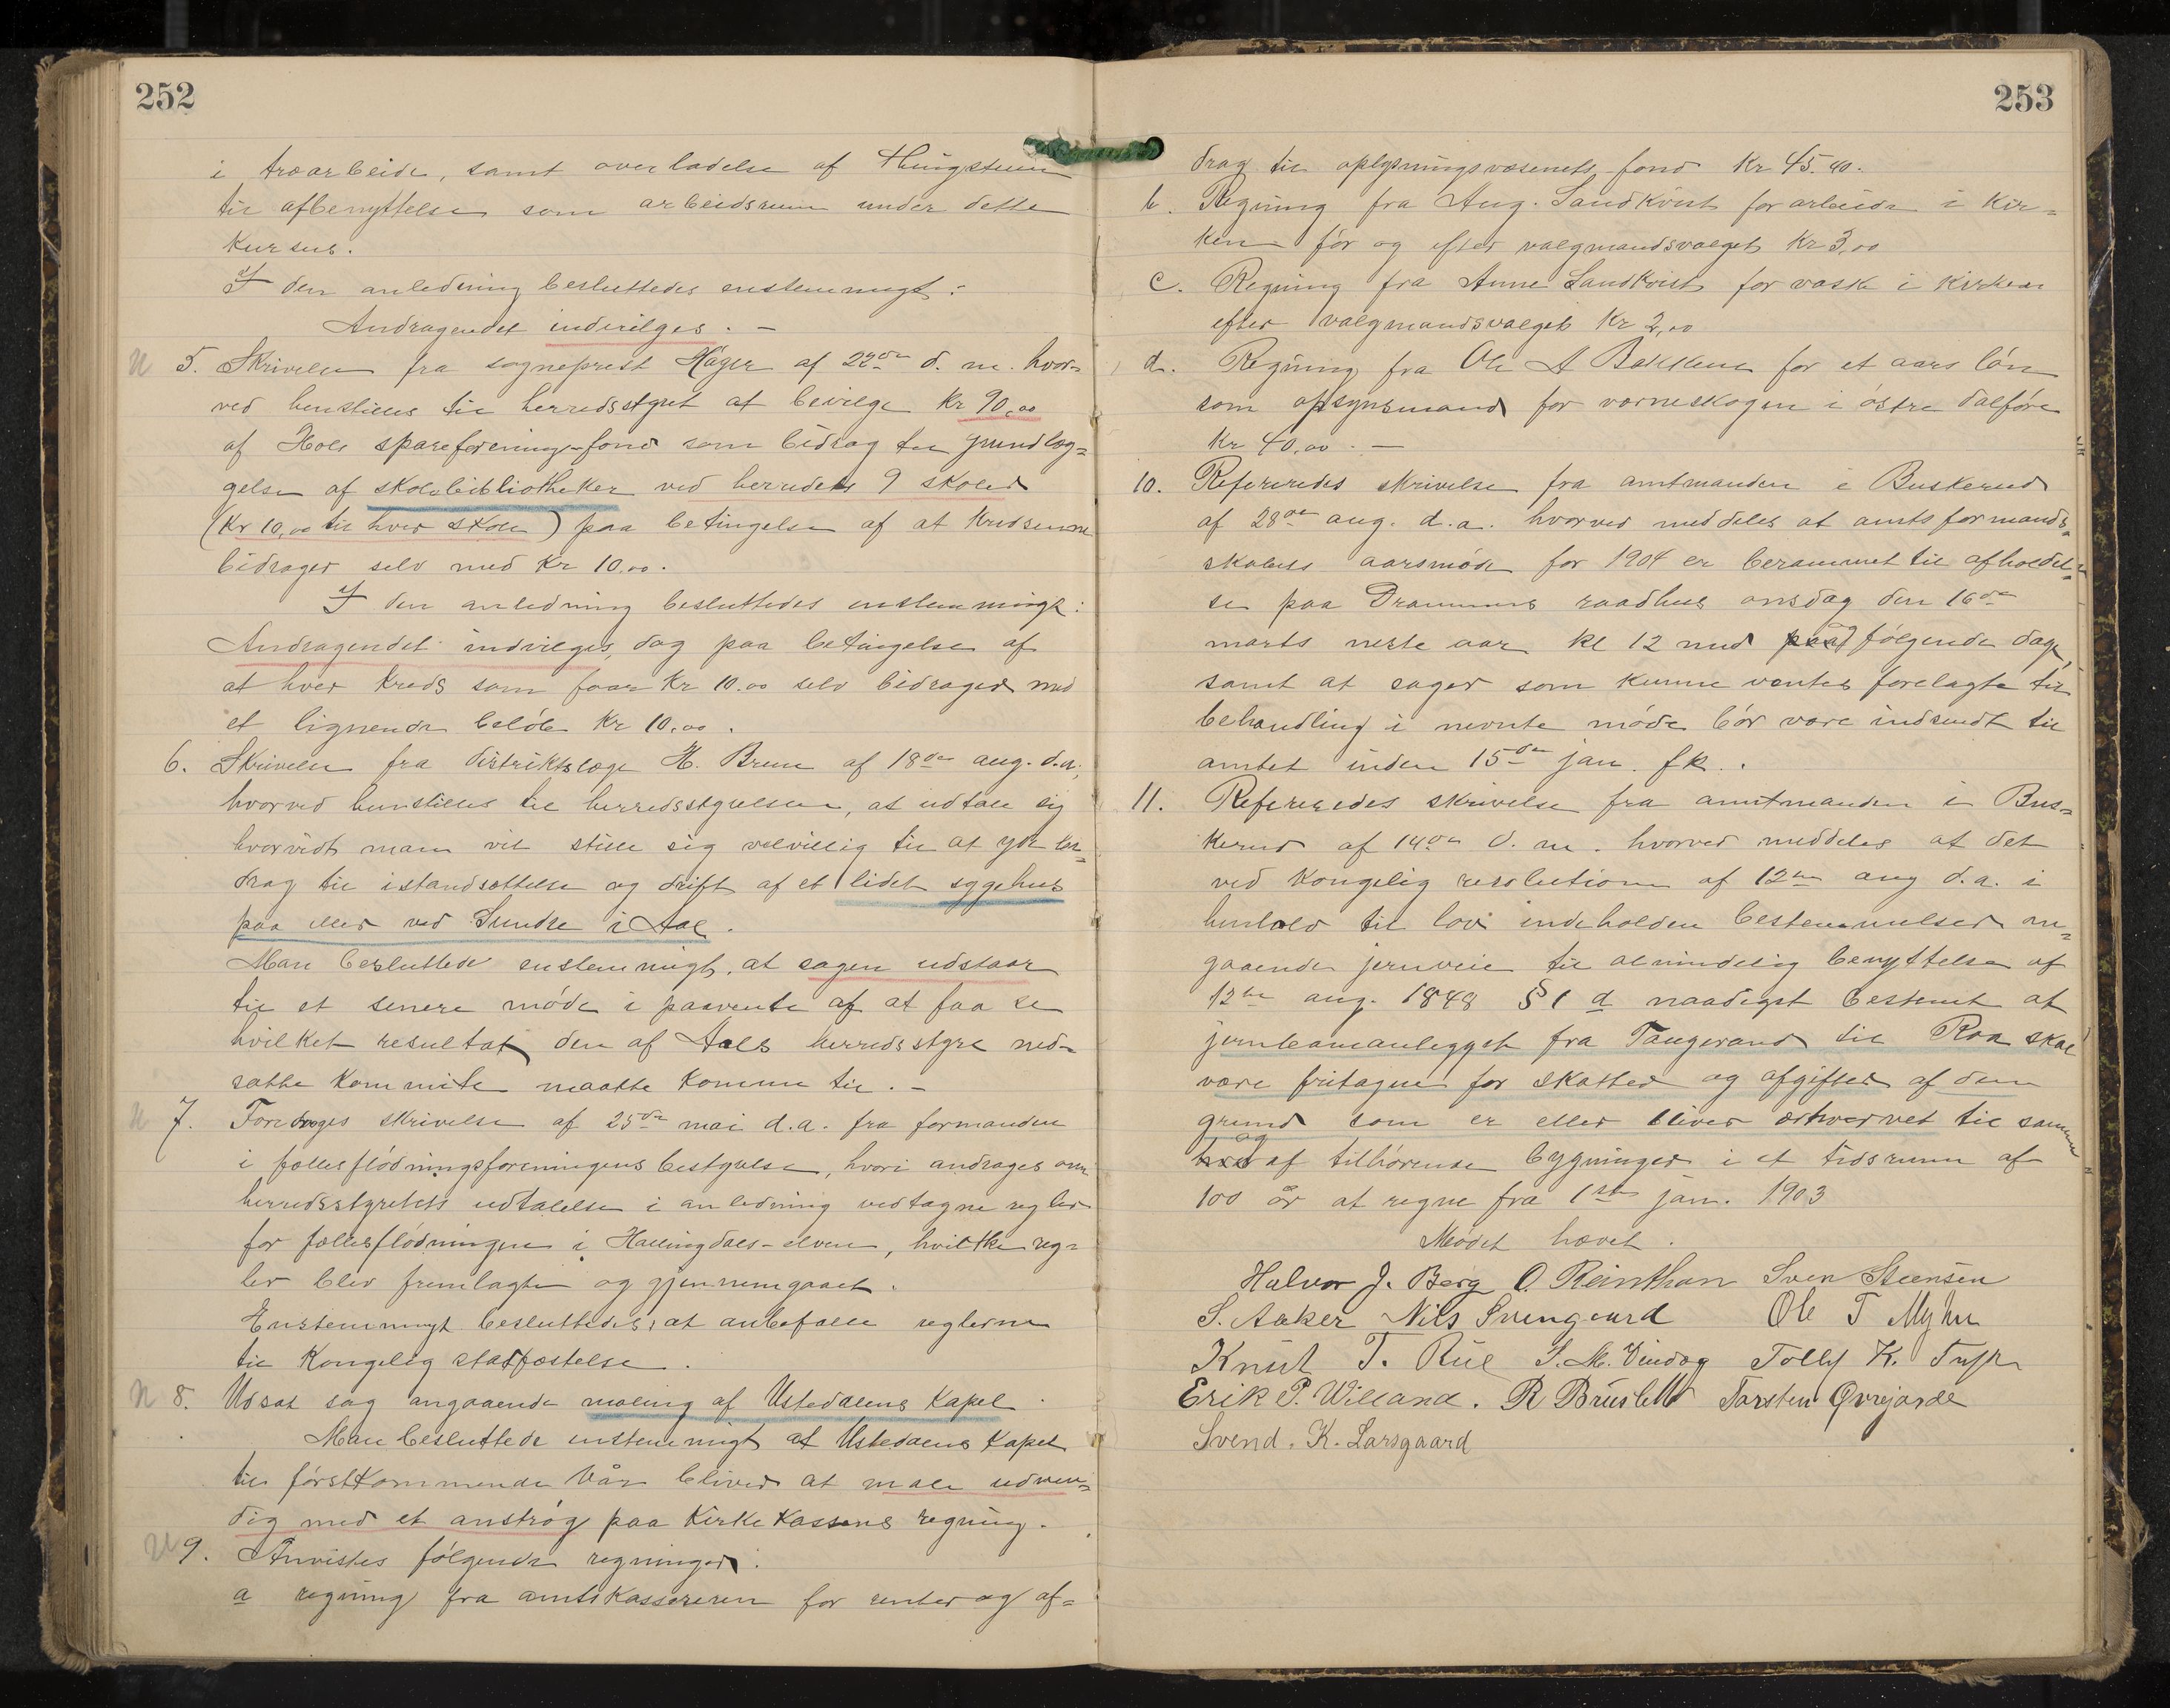 252
i træarbeide, samt overladelse af Thingstuen
til afbenyttelse som arbeidsrum under dette
kursus.
I den anledning besluttedes enstemmigt:
Andragendet indvilges. —
5. Skrivelse fra sogneprest Häger af 22de d. m. hvor=
ved henstilles til herredsstyret at bevilge Kr 90,00
af Hols spareforenings-fond som bidrag til grundlæg=
gelse af skolebibliotheker ved herredets 9 skoler
(Kr 10,00 til hver skole) paa betingelse af at kredsene
bidrager selv med Kr 10.00.
I den anledning besluttedes enstemmigt:
Andragendet indvilges, dog paa betingelse af
at hver kreds som faar Kr 10.00 selv bidrager med
et lignende beløb Kr 10,00.
6. Skrivelse fra distriktslæge H. Brun af 18de aug. d.a.,
hvorved henstilles til herredsstyrelsen, at udtale sig
hvorvidt man vil stille sig velvillig til at yde bi=
drag til istandsættelse og drift af et lidet sygehus
paa eller ved Sundre i Aal.
Man besluttede enstemmigt, at sagen udstaar
til et senere møde i paavente af at faa se
hvilket resultat den af Aals herredsstyre ned=
satte kommite maatte komme til. —
7. Foredroges skrivelse af 25de mai d.a. fra formanden
i fællesflødningsforeningens bestyrelse, hvori andrages om
herredsstyrets udtalelse i anledning vedtagne regler
for fællesflødningen i Hallingdals-elven, hvilke reg=
ler blev fremlagte og gjennemgaaet.
Enstemmigt besluttedes, at anbefale reglerne
til Kongelig stadfæstelse.
8. Udsat sag angaaende maling af Ustedalens Kapel.
Man besluttede enstemmigt at Ustedalens Kapel
til førstkommende Vår bliver at male udven=
dig med et anstrøg paa Kirkekassens regning.
9. Anvistes følgende regninger:
a regning fra amtskassereren for renter og af=
253
drag til oplysningsvæsenets fond Kr 45.40.
b. Regning fra Aug. Sandkvist for arbeide i Kir=
ken før og efter valgmandsvalget Kr 3,00
c. Regning fra Anne Sandkvist for vask i Kirken
efter valgmandsvalget Kr 2,00
d. Regning fra Ole A Bakken for et aars løn
som opsynsmand for værneskogen i østre dalføre
Kr 40,00. —
10. Refereredes skrivelse fra amtmanden i Buskerud
af 28de aug. d.a. hvorved meddeles at amtsformands=
skabets aarsmøde for 1904 er berammet til afholdel=
se paa Drammens raadhus onsdag den 16de
marts neste aar kl 12 med paafølgende dage,
samt at sager som kunne ventes forelagte til
behandling i nevnte møde bør være indsendt til
amtet inden 15de jan. fk..
11. Refereredes skrivelse fra amtmanden i Bus=
kerud af 14de d. m. hvorved meddeles at det
ved kongelig resolution af 12te aug d.a. i
henhold til lov indeholden bestemmelser an=
gaaende jernveie til almindelig benyttelse af
12te aug. 1848 § 1 d naadigst bestemt at
jernbaneanlegget fra Tangerand til Roa skal
være fritagne for skatter og afgifter af den
grund som er eller bliver erhvervet til samme
og af tilhørende bygninger i et tidsrum af
100 år at regne fra 1ste jan. 1903
Mødet hævet.
Halvor J. Berg O. Reinthon Sven Steensen
S. Aaker Nils Svengaard Ole T Myhre
Knut T. Rue S. M. Vindøg Tollef K. Tufte
Erik P. Villand. R Brusletto Torsten Øvrejorde
Svend. K. Larsgaard